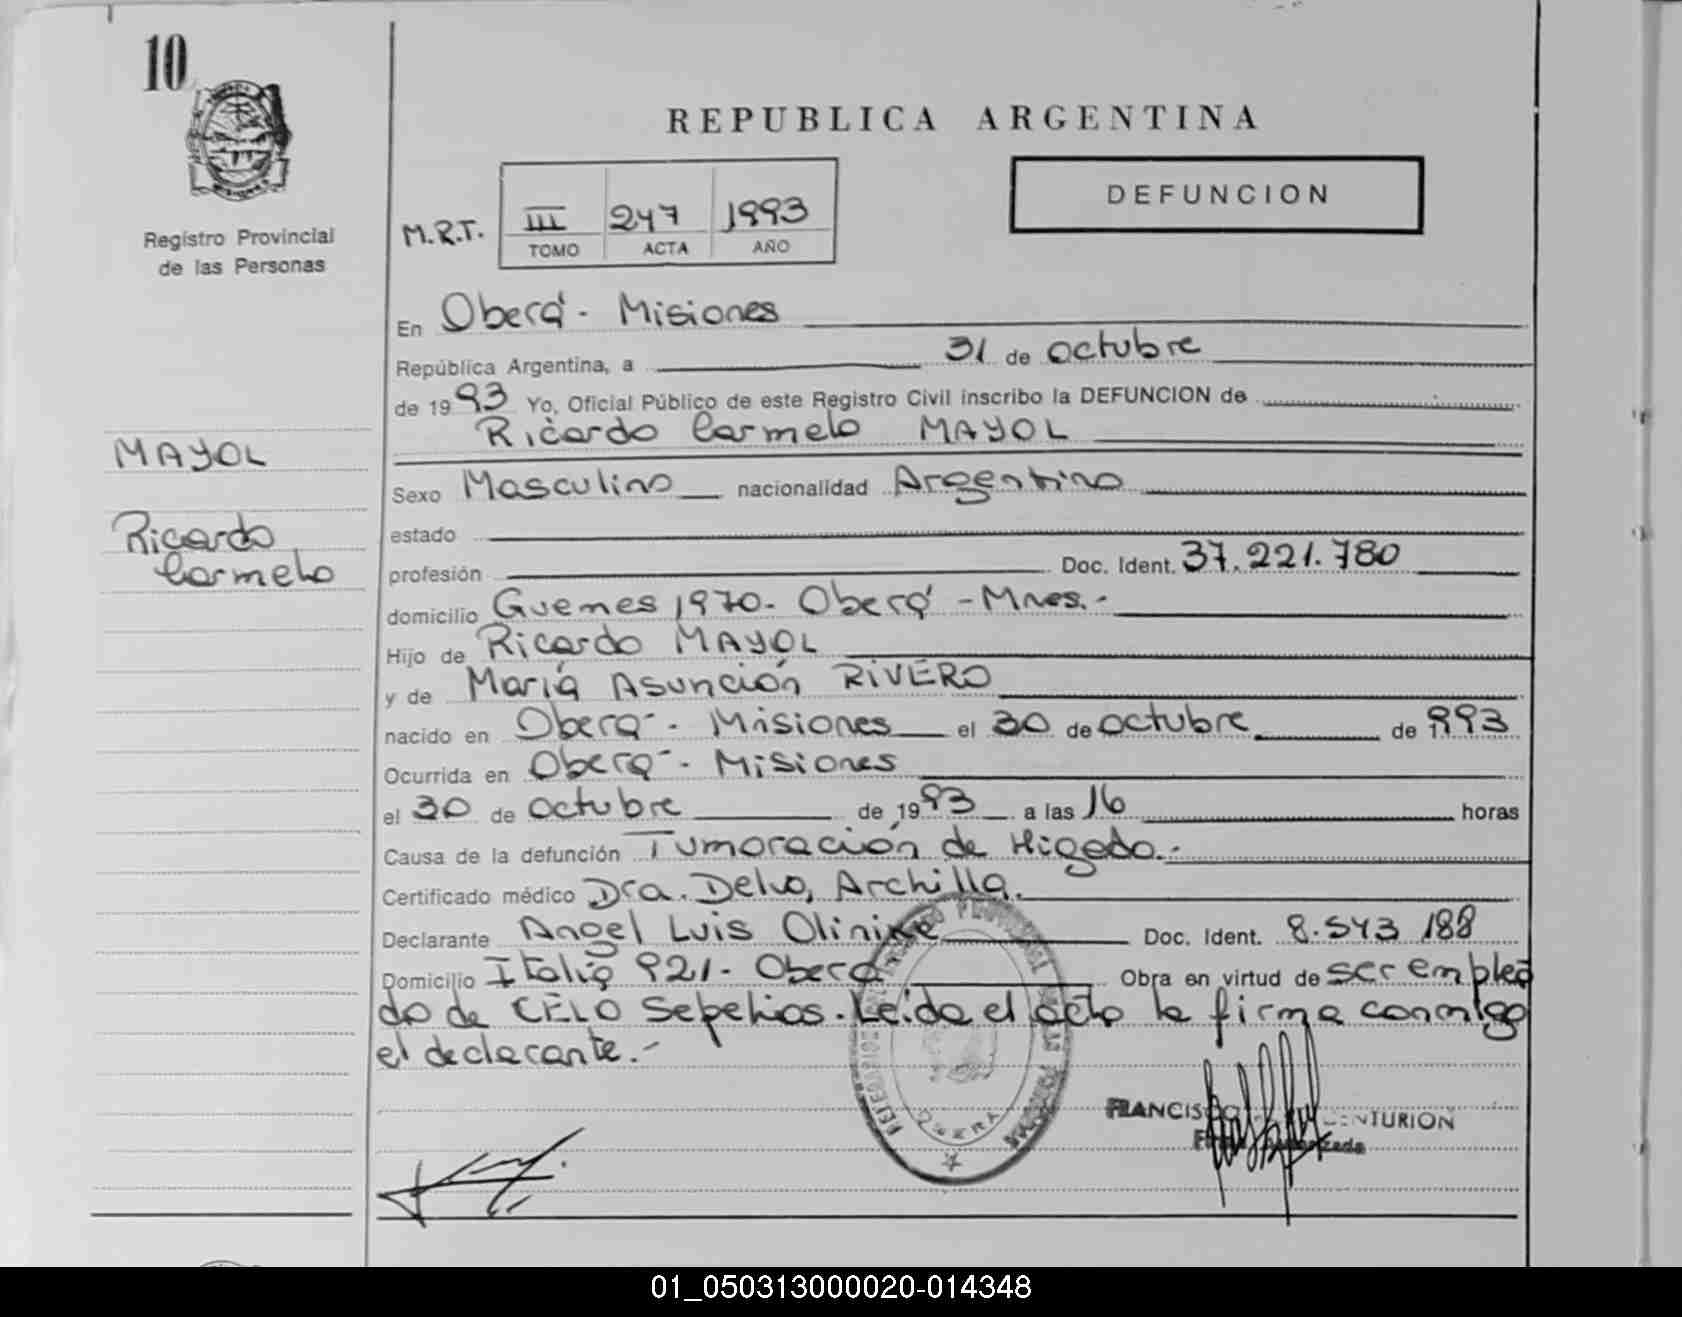 10
REPUBLICA ARGENTINA
DEFUNCION
M.R.T. III 247 1993
TOMO ACTA AÑO
Registro Provincial
de las Personas
MAYOL
Ricardo
Carmelo
En Oberá - Misiones
República Argentina, a 31 de octubre
de 1993 Yo, Oficial Público de este Registro Civil inscribo la DEFUNCION de
Ricardo Carmelo MAYOL
Sexo Masculino nacionalidad Argentino
estado
profesión Doc. Ident. 37.221.780
domicilio Guemes 1970. Oberá - Mnes.-
Hijo de Ricardo MAYOL
y de María Asunción RIVERO
nacido en Oberá - Misiones el 30 de octubre de 1993
Ocurrida en Oberá - Misiones
el 30 de octubre de 1993 a las 16 horas
Causa de la defunción Tumoración de Higado.-
Certificado médico Dra. Archilla.
Declarante Angel Luis Doc. Ident. 8.543.188
Domicilio Italia 921. Oberá Obra en virtud de ser emplea
do de CELO Sepelios. Leida el acta la firma conmigo
el declarante.-
OBERA
FRANCIS CENTURION
01_050313000020-014348